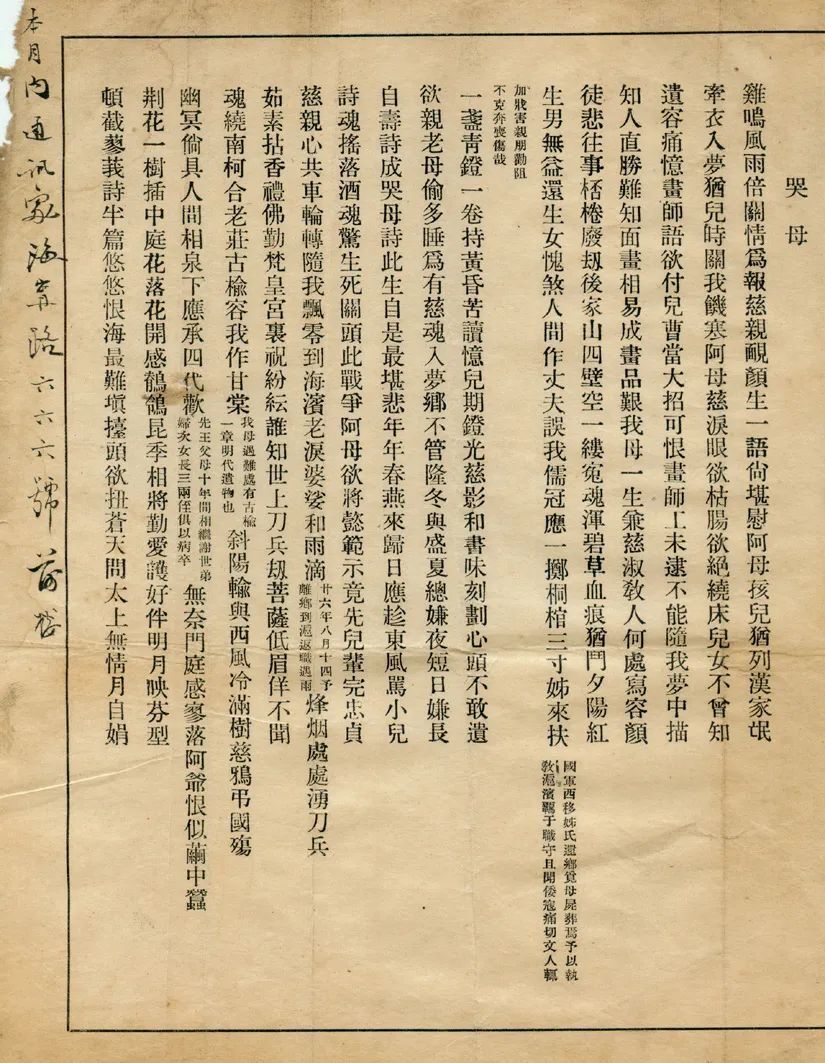 哭母
雞鳴風雨倍關情為報慈親靦顏生一語尙堪慰阿母孩兒猶列漢家氓
牽衣入夢猶兒時關我饑寒阿母慈淚眼欲枯腸欲絕繞床兒女不曾知
遺容痛憶畫師語欲付兒曹當大招可恨畫師工未逮不能隨我夢中描
知人直勝難知面畫相易成畫品艱我母一生兼慈淑敎人何處寫容顏
徒悲往事桮棬廢刼後家山四壁空一縷寃魂渾碧草血痕猶鬥夕陽紅
生男無益還生女愧煞人間作丈夫誤我儒冠應一擲桐棺三寸姊來扶
國軍西移姊氏還鄉覓母屍葬焉予以執
敎滬濱羈于職守且聞倭寇痛切文人輒
加戕害親朋勸阻
不克奔喪傷哉
一盞靑鐙一卷持黃昏苦讀憶兒期鐙光慈影和書味刻劃心頭不敢遺
欲親老母偷多睡為有慈魂入夢鄉不管隆冬與盛夏總嫌夜短日嫌長
自壽詩成哭母詩此生自是最堪悲年年春燕來歸日應趁東風罵小兒
詩魂搖落酒魂驚生死關頭此戰爭阿母欲將懿範示竟先兒輩完忠貞
慈親心共車輪轉隨我飄零到海濱老淚婆娑和雨滴
廿六年八月十四予
離鄉到滬返職遇雨
烽烟處處湧刀兵
茹素拈香禮佛勤梵皇宮裏祝紛紜誰知世上刀兵刼菩薩低眉佯不聞
魂繞南柯合老莊古榆容我作甘棠
我母遇難處有古榆
一章明代遺物也
斜陽輸與西風冷滿樹慈鴉弔國殤
幽冥倘具人間相泉下應承四代歡
先王父母十年間相繼謝世弟
婦次女長三兩侄俱以病卒
無奈門庭感寥落阿爺恨似繭中蠶
荆花一樹插中庭花落花開感鶺鴒昆季相將勤愛護好伴明月映芬型
頓截蓼莪詩半篇悠悠恨海最難塡擡頭欲扭蒼天問太上無情月自娟
本月內通訊處海寗路六六六號